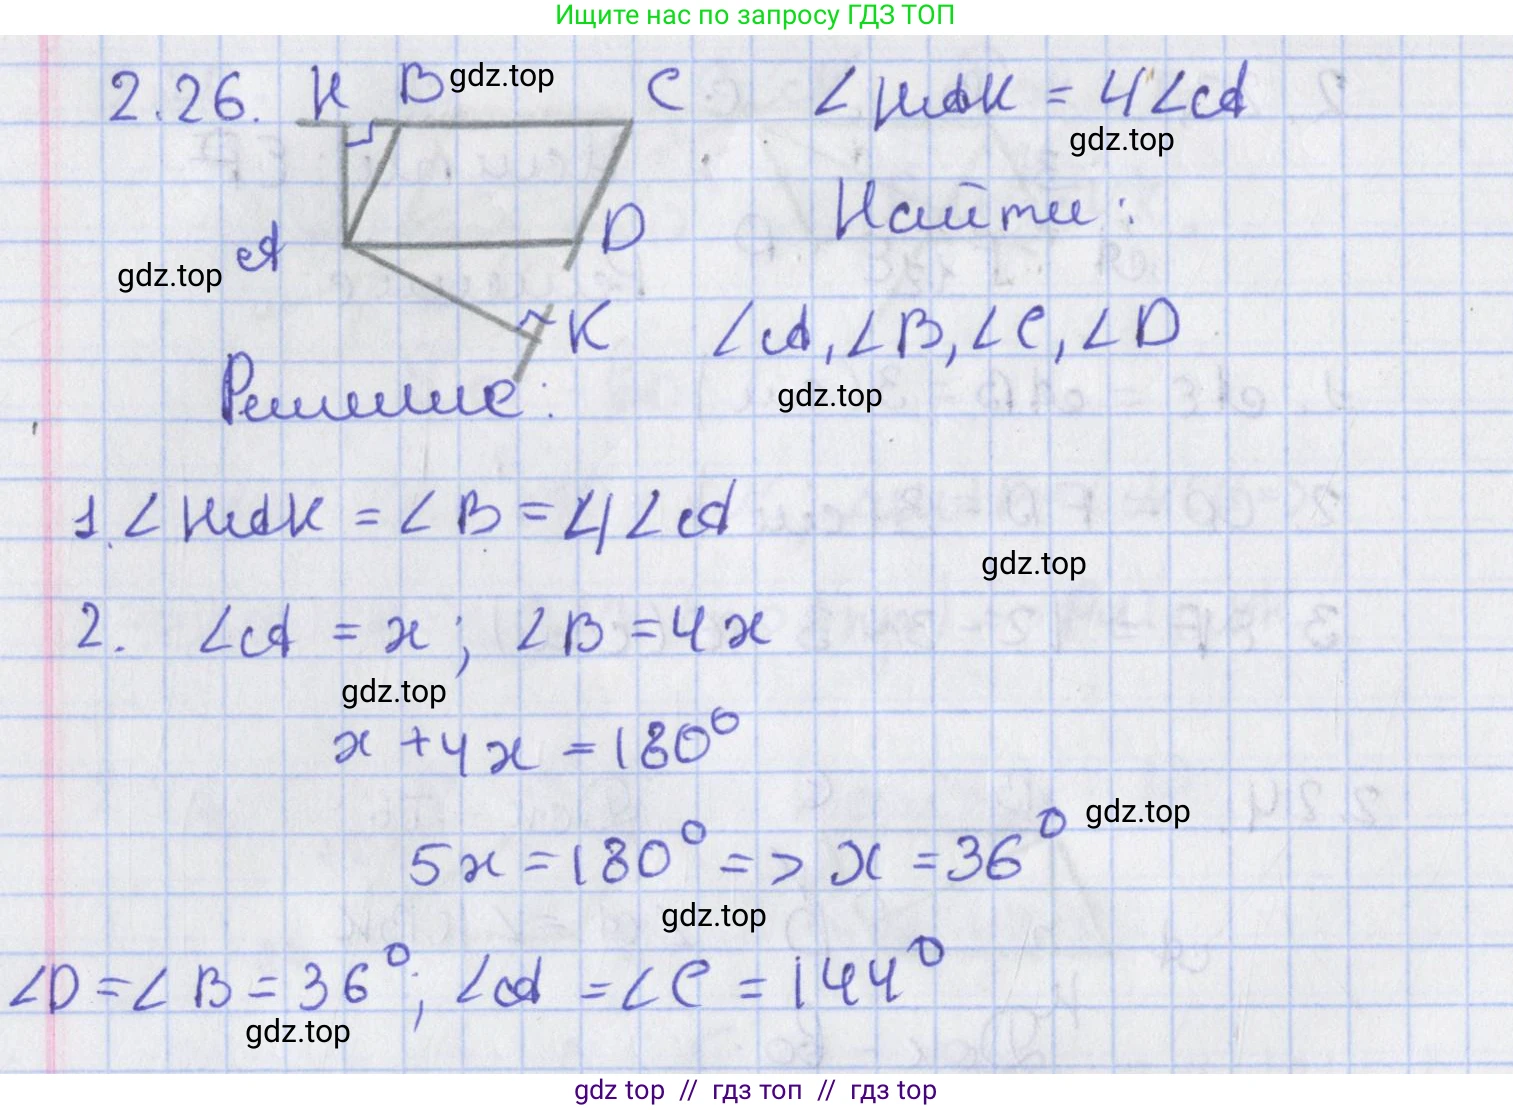 Ищите нас по запросу ГДЗ ТОП
2.26. H B gdz.top C ∠HAK = 4∠A
gdz.top
Найти:
A D
gdz.top
K ∠A, ∠B, ∠C, ∠D
Решение: gdz.top
1. ∠HAK = ∠B = 4∠A
gdz.top
2. ∠A = x; ∠B = 4x
gdz.top
x + 4x = 180°
gdz.top
5x = 180° => x = 36°
gdz.top
∠D = ∠B = 36°; ∠A = ∠C = 144°
gdz.top
gdz top // гдз топ // гдз top